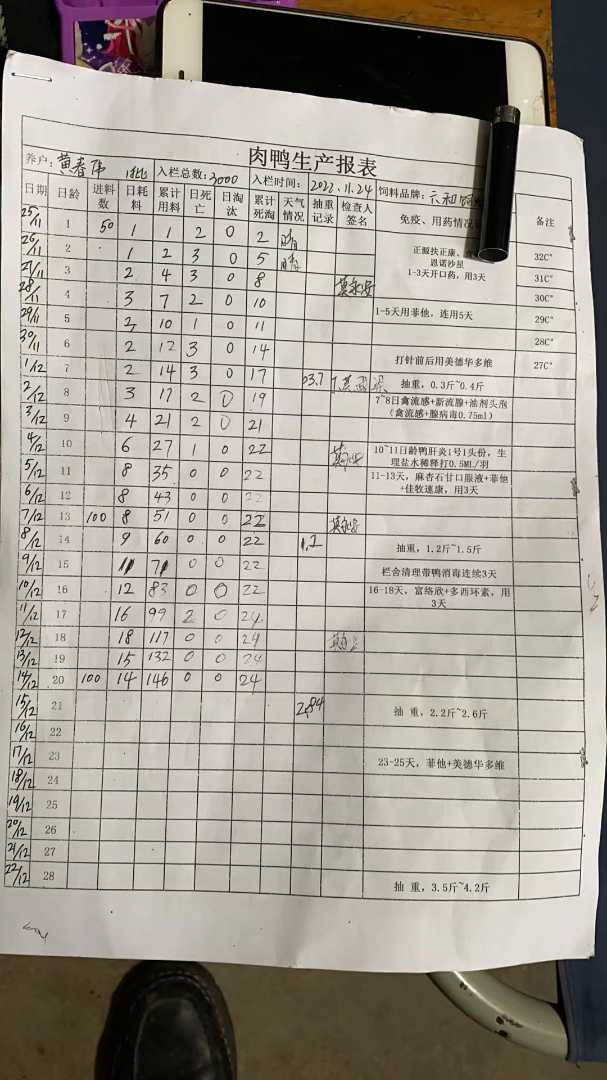 肉鸭生产报表
养户: 黄春伟 1批 入栏总数: 3000 入栏时间: 2022.11.24 饲料品牌: 六和
日期 日龄 进料数 日耗料 累计用料 日死亡 日淘汰 累计死淘 天气情况 抽重记录 检查人签名 免疫、用药情况 备注
25/11 1 50 1 1 2 0 2 晴 正源扶正康、 恩诺沙星 1-3天开口药,用3天 32C°
26/11 2 1 2 3 0 5 晴
27/11 3 2 4 3 0 8 31C°
28/11 4 3 7 2 0 10 30C°
29/11 5 3 10 1 0 11 1-5天用菲他,连用5天 29C°
30/11 6 2 12 3 0 14 28C°
1/12 7 2 14 3 0 17 打针前后用美德华多维 27C°
2/12 8 3 17 2 0 19 03.7 抽重,0.3斤~0.4斤
3/12 9 4 21 2 0 21 7~8日禽流感+新流腺+油剂头孢(禽流感+腺病毒0.75ml)
4/12 10 6 27 1 0 22 10~11日龄鸭肝炎1号1头份,生理盐水稀释打0.5ML/羽
5/12 11 8 35 0 0 22 11-13天,麻杏石甘口服液+菲他+佳牧速康,用3天
6/12 12 8 43 0 0 22
7/12 13 100 8 51 0 0 22
8/12 14 9 60 0 0 22 1.2 抽重,1.2斤~1.5斤
9/12 15 11 71 0 0 22 栏舍清理带鸭消毒连续3天
10/12 16 12 83 0 0 22 16-18天,富络欣+多西环素,用3天
11/12 17 16 99 2 0 24
12/12 18 18 117 0 0 24
13/12 19 15 132 0 0 24
14/12 20 100 14 146 0 0 24
15/12 21 2.84 抽 重,2.2斤~2.6斤
16/12 22
17/12 23 23-25天,菲他+美德华多维
18/12 24
19/12 25
20/12 26
21/12 27
22/12 28 抽 重,3.5斤~4.2斤